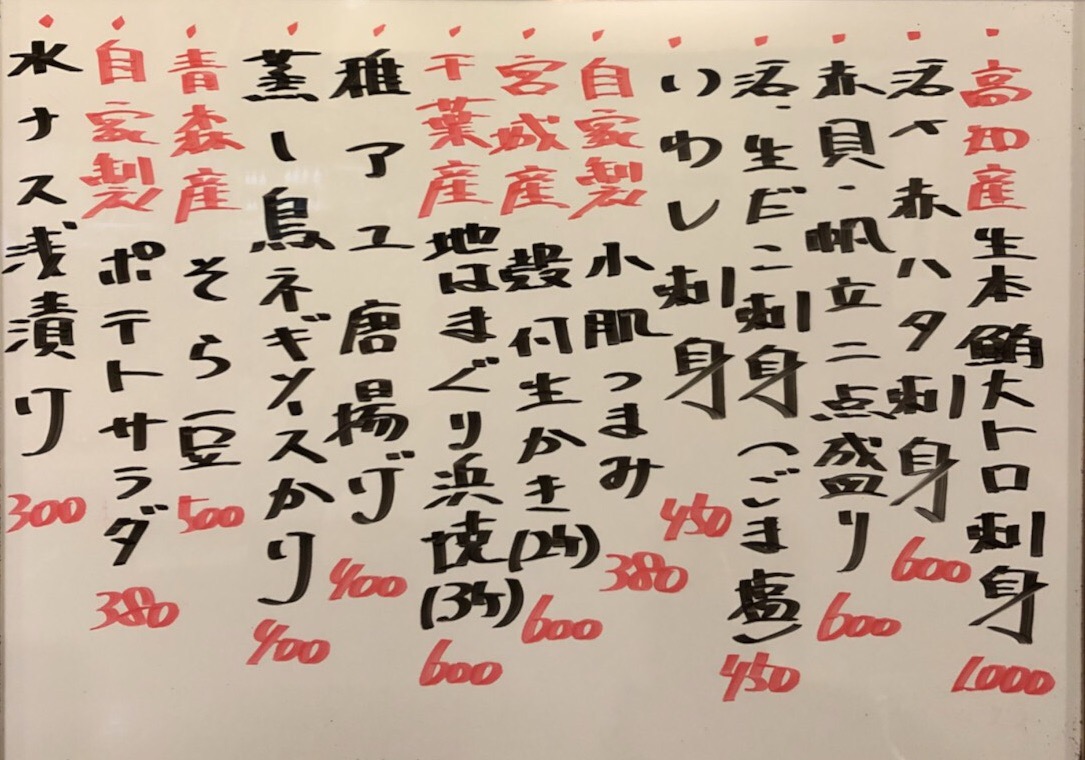 高知産 生本鮪大トロ刺身 1000
活〆赤ハタ刺身 600
赤貝・帆立二点盛り 600
活・生だこ刺身(ごま塩) 450
いわし刺身 450
自家製 小肌つまみ 380
宮城産 殻付生かき(2ケ) 600
千葉産 地はまぐり浜焼(3ケ) 600
稚アユ唐揚げ 400
蒸し鳥ネギソースかけ 400
青森産 そら豆 500
自家製 ポテトサラダ 380
水ナス浅漬け 300